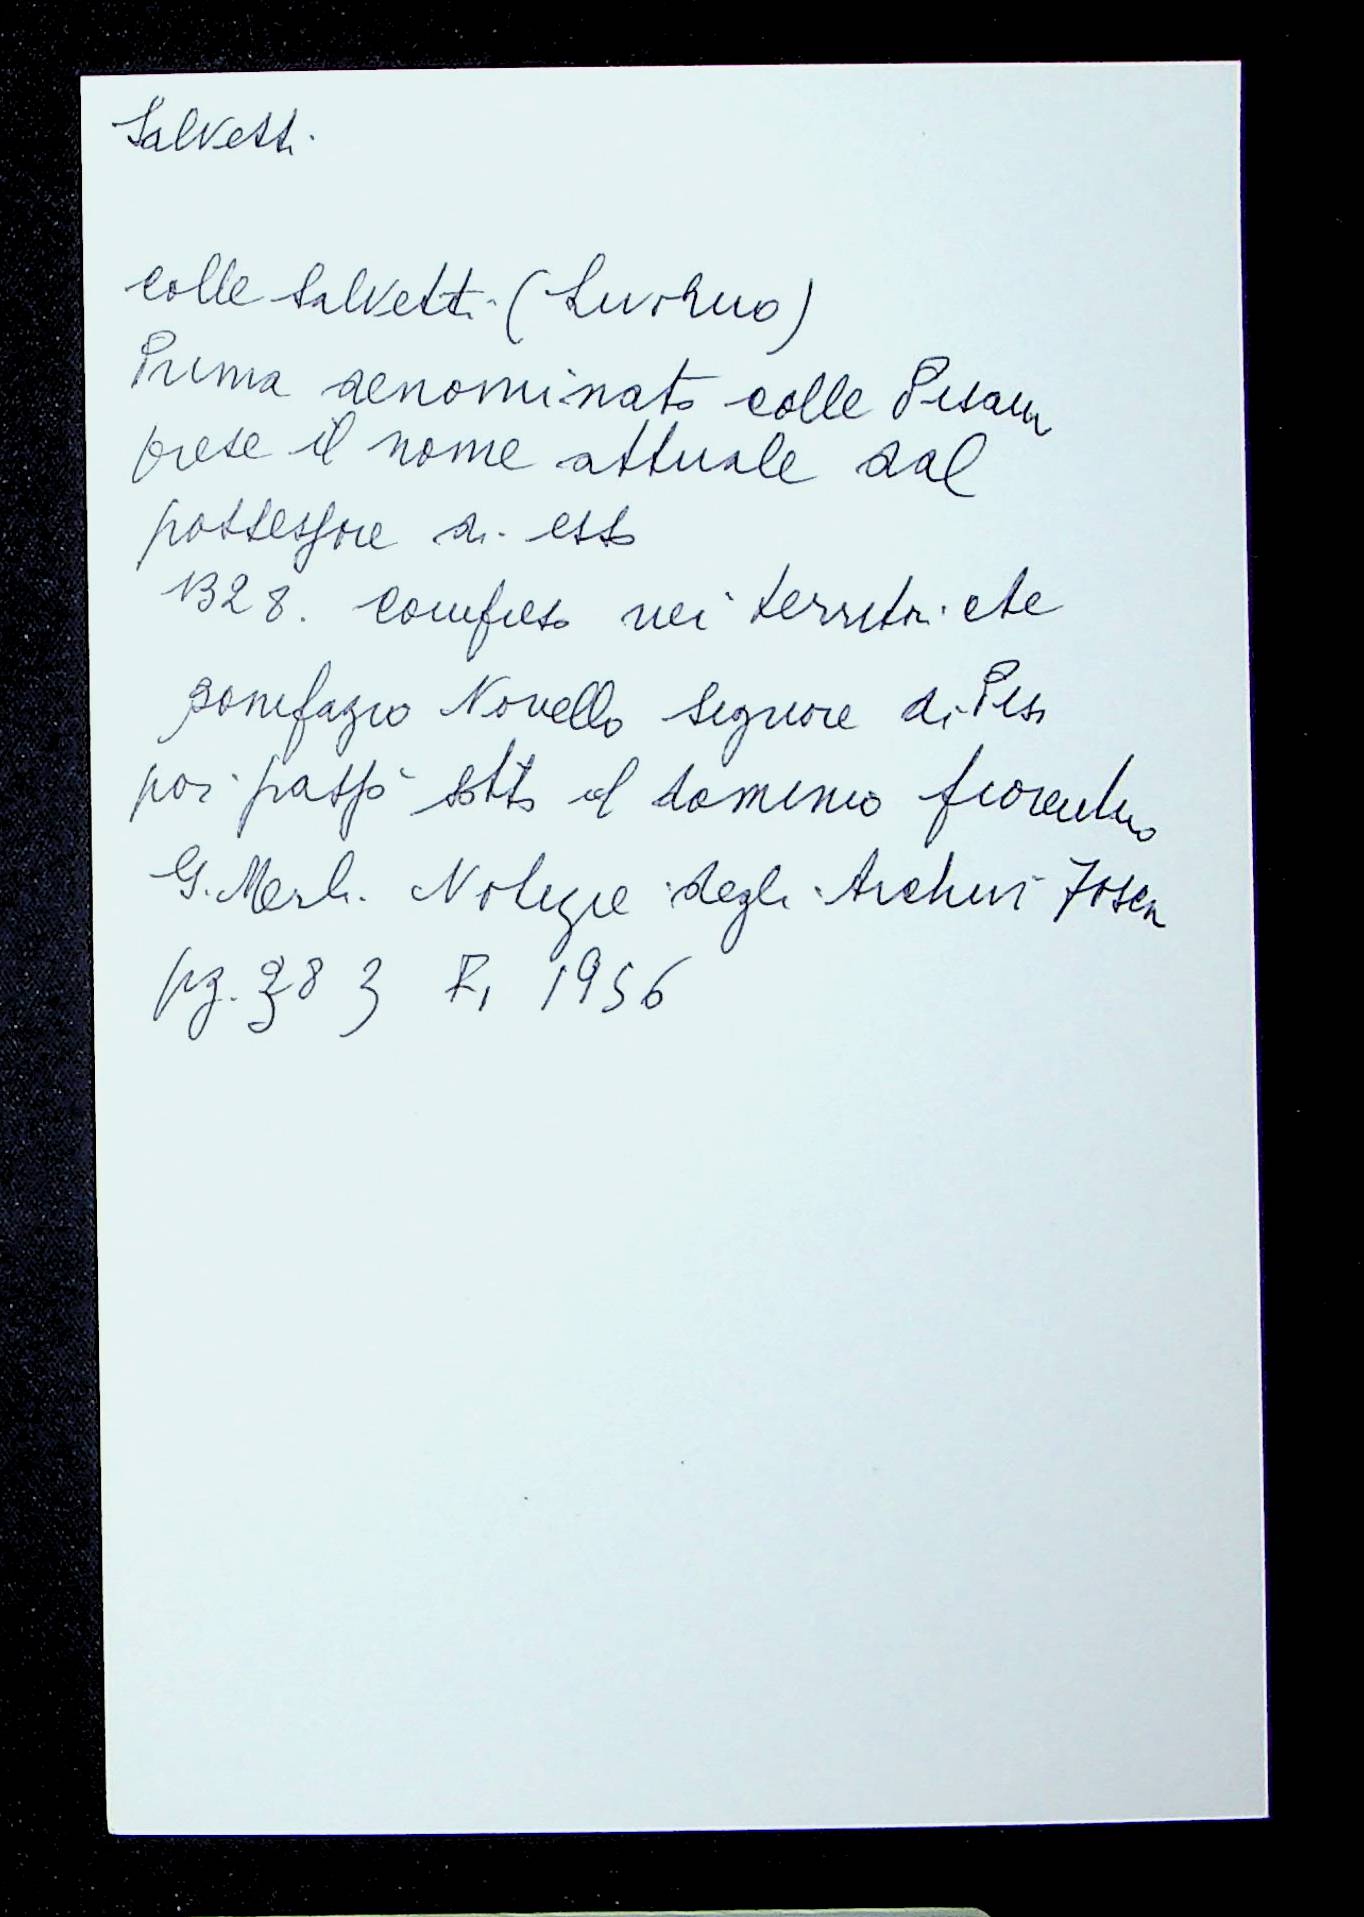 Salvetti
colle Salvetti (Livorno)
Prima denominato colle Pisan
prese il nome attuale dal
possessore di esso
1328. compreso nei territori che
Bonifazio Novello Signore di Pis
poi passò sotto il dominio fiorentino
G. Merli. Notizie degli Archivi Toscn
pg. 383 Fi 1956